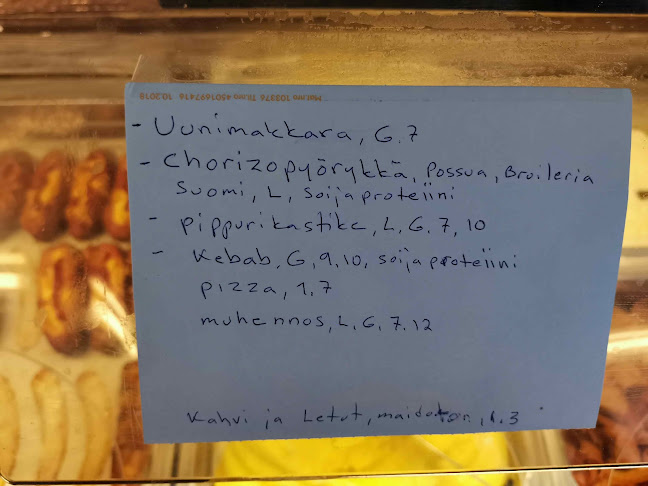 Mat.nro 103376 Til.nro 4501697416 10.2018
- Uunimakkara, G, 7
- Chorizopyörykkä, Possua, Broileria
Suomi, L, Soijaproteiini
- pippurikastike, L, G, 7, 10
- Kebab, G, 9, 10, soijaproteiini
pizza, 1, 7
muhennos, L, G, 7, 12
Kahvi ja Letut, maidoton, 1, 3